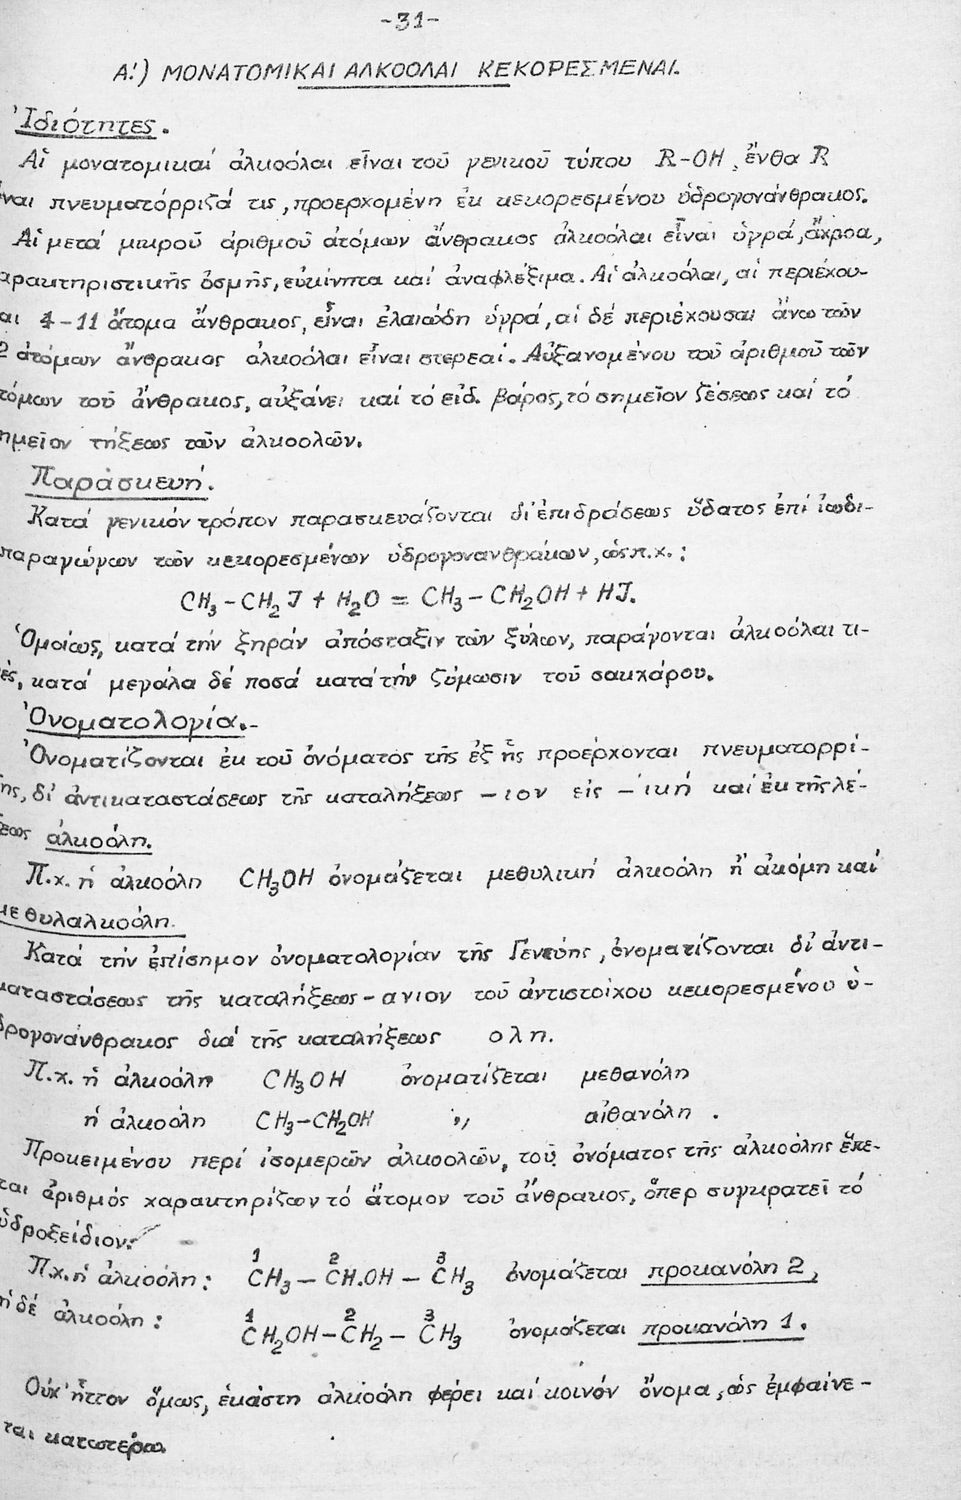 -31-
Α!) ΜΟΝΑΤΟΜΙΚΑΙ ΑΛΚΟΟΛΑΙ ΚΕΚΟΡΕΣΜΕΝΑΙ.
Ἰδιότητες.
Αἱ μονατομικαί ἀλκοόλαι εἶναι τοῦ γενικοῦ τύπου R-OH, ἔνθα R
ναι πνευματόρριζά τις, προερχομένη ἐκ κεκορεσμένου ὑδρογονάνθρακος.
Αἱ μετά μικροῦ ἀριθμοῦ ἀτόμων ἄνθρακος ἀλκοόλαι εἶναι ὑγρά, ἄχροα,
αρακτηριστικῆς ὀσμῆς, εὐκίνητα καί ἀναφλέξιμα. Αἱ ἀλκοόλαι, αἱ περιέχου-
αι 4-11 ἄτομα ἄνθρακος, εἶναι ἐλαιώδη ὑγρά, αἱ δέ περιέχουσαι ἄνω τῶν
2 ἀτόμων ἄνθρακος ἀλκοόλαι εἶναι στερεαί. Αὐξανομένου τοῦ ἀριθμοῦ τῶν
τόμων τοῦ ἄνθρακος, αὐξάνει καί τό εἰδ. βάρος, τό σημεῖον ζέσεως καί τό
ημεῖον τήξεως τῶν ἀλκοολῶν.
Παρασκευή.
Κατά γενικόν τρόπον παρασκευάζονται δι' ἐπιδράσεως ὕδατος ἐπί ἰωδι-
παραγώγων τῶν κεκορεσμένων ὑδρογονανθράκων, ὡς π.χ.:
CH₃-CH₂J + H₂O = CH₃-CH₂OH + HJ.
Ὁμοίως, κατά τήν ξηράν ἀπόσταξιν τῶν ξύλων, παράγονται ἀλκοόλαι τι-
ές, κατά μεγάλα δέ ποσά κατά τήν ζύμωσιν τοῦ σακχάρου.
Ὀνοματολογία.-
Ὀνοματίζονται ἐκ τοῦ ὀνόματος τῆς ἐξ ἧς προέρχονται πνευματορρί-
ζης, δι' ἀντικαταστάσεως τῆς καταλήξεως -ιον εἰς -ική καί ἐκ τῆς λέ-
ξεως ἀλκοόλη.
Π.χ. ἡ ἀλκοόλη CH₃OH ὀνομάζεται μεθυλική ἀλκοόλη ἤ ἀκόμη καί
μεθυλαλκοόλη.
Κατά τήν ἐπίσημον ὀνοματολογίαν τῆς Γενεύης, ὀνοματίζονται δι' ἀντι-
καταστάσεως τῆς καταλήξεως -ανιον τοῦ ἀντιστοίχου κεκορεσμένου ὑ-
δρογονάνθρακος διά τῆς καταλήξεως ολη.
Π.χ. ἡ ἀλκοόλη CH₃OH ὀνοματίζεται μεθανόλη
ἡ ἀλκοόλη CH₃-CH₂OH ,, αἰθανόλη.
Προκειμένου περί ἰσομερῶν ἀλκοολῶν, τοῦ ὀνόματος τῆς ἀλκοόλης ἕπε-
ται ἀριθμός χαρακτηρίζων τό ἄτομον τοῦ ἄνθρακος, ὅπερ συγκρατεῖ τό
ὑδροξείδιον:
1 2 3
Π.χ. ἡ ἀλκοόλη: CH₃-CH.OH-CH₃ ὀνομάζεται προκανόλη 2,
1 2 3
ἡ δέ ἀλκοόλη: CH₂OH-CH₂-CH₃ ὀνομάζεται προκανόλη 1.
Οὐχ' ἧττον ὅμως, ἑκάστη ἀλκοόλη φέρει καί κοινόν ὄνομα, ὡς ἐμφαίνε-
ται κατωτέρω.